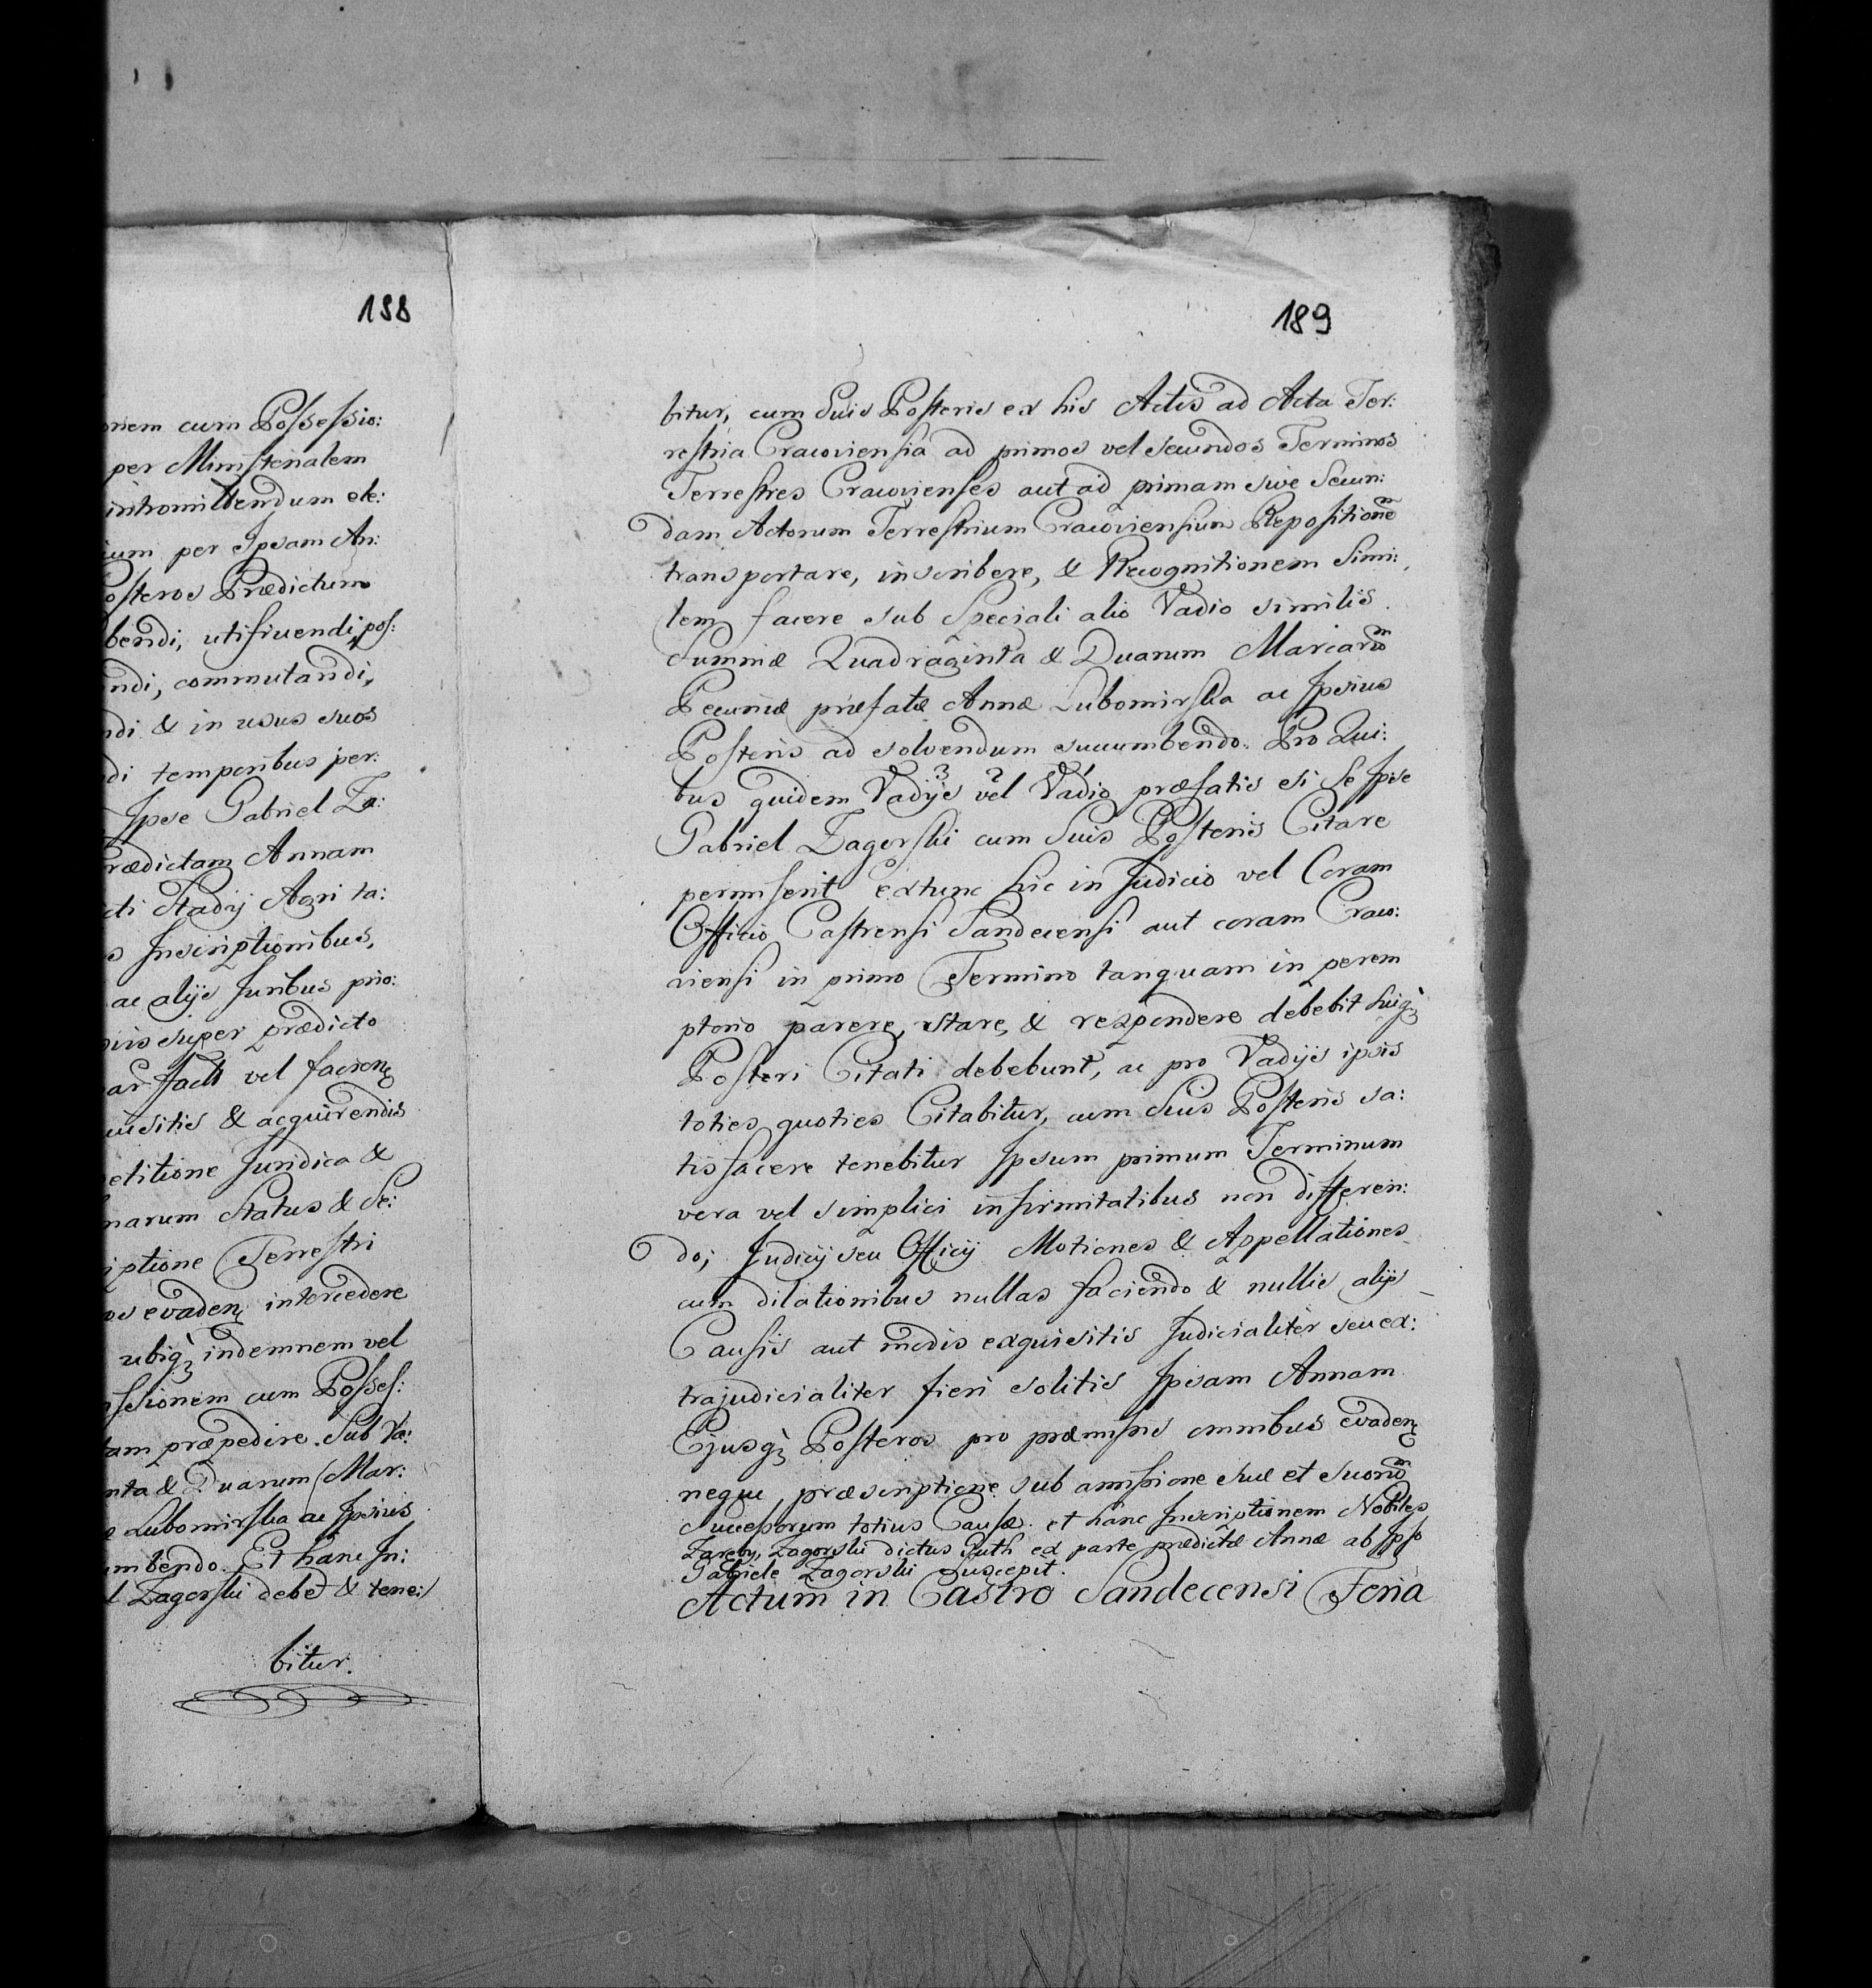 188
onem cum Possessio:
per Ministerialem
intromittendum ele:
ium per Ipsam An:
osteros Prædictum
bendi, utifruendi, pos:
ndi, commutandi,
ndi & in usus suos
di temporibus per:
Ipse Gabriel Za:
rædictam Annam
cti Stadij Agri ta:
s Inscriptionibus,
ac alijs Juribus prio:
super prædicto
factis vel faciend
uisitis & acquirendis
petitione Juridica &
narum Status & Se:
iptione Terrestri
os evadend intercedere
ubiq indemnem vel
issionem cum Posses:
tam præpedire. Sub Va:
nta & Duarum Mar:
e Lubomirska ac Ipsius
umbendo. Et hanc In:
l Zagorski debet & tene:/
bitur.
189
bitur, cum Suis Posteris ex his Actis ad Acta Ter:
restria Cracoviensia ad primos vel secundos Terminos
Terrestres Cracovienses aut ad primam sive Secun:
dam Actorum Terrestrium Cracoviensium Repositionem
transportare, inscribere, & Recognitionem Simi:
lem facere sub Speciali alio Vadio similis
Summæ Quadraginta & Duarum Marcarum
Pecuniæ præfatæ Annæ Lubomirska ac Ipsius
Posteris ad solvendum succumbendo. Pro Qui:
bus quidem Vadijs vel Vadio præfatis si Se Ipse
Gabriel Zagorski cum Suis Posteris Citare
permiserit extunc hic in Judicio vel Coram
Officio Castrensi Sandecensi aut coram Craco:
viensi in primo Termino tanquam in perem
ptorio parere, stare, & respondere debebit Suiq
Posteri Citati debebunt, ac pro Vadijs ipsis
toties quoties Citabitur, cum Suis Posteris sa:
tisfacere tenebitur Ipsum primum Terminum
vera vel simplici infirmitatibus non differen:
do; Judicij seu Officij Motiones & Appellationes
cum dilationibus nullas faciendo & nullis alijs
Causis aut modis exquisitis Judicialiter seu ex:
trajudicialiter fieri solitis Ipsam Annam
Ejusq Posteros pro præmissis omnibus evadend
neque præscriptione sub amissione suæ et suorum
Successorum totius Causæ. et hanc Inscriptionem Nobiles
Zagorski dictus Puth ex parte prædictæ Annæ ab Ipso
Gabriele Zagorski suscepit.
Actum in Castro Sandecensi Feria